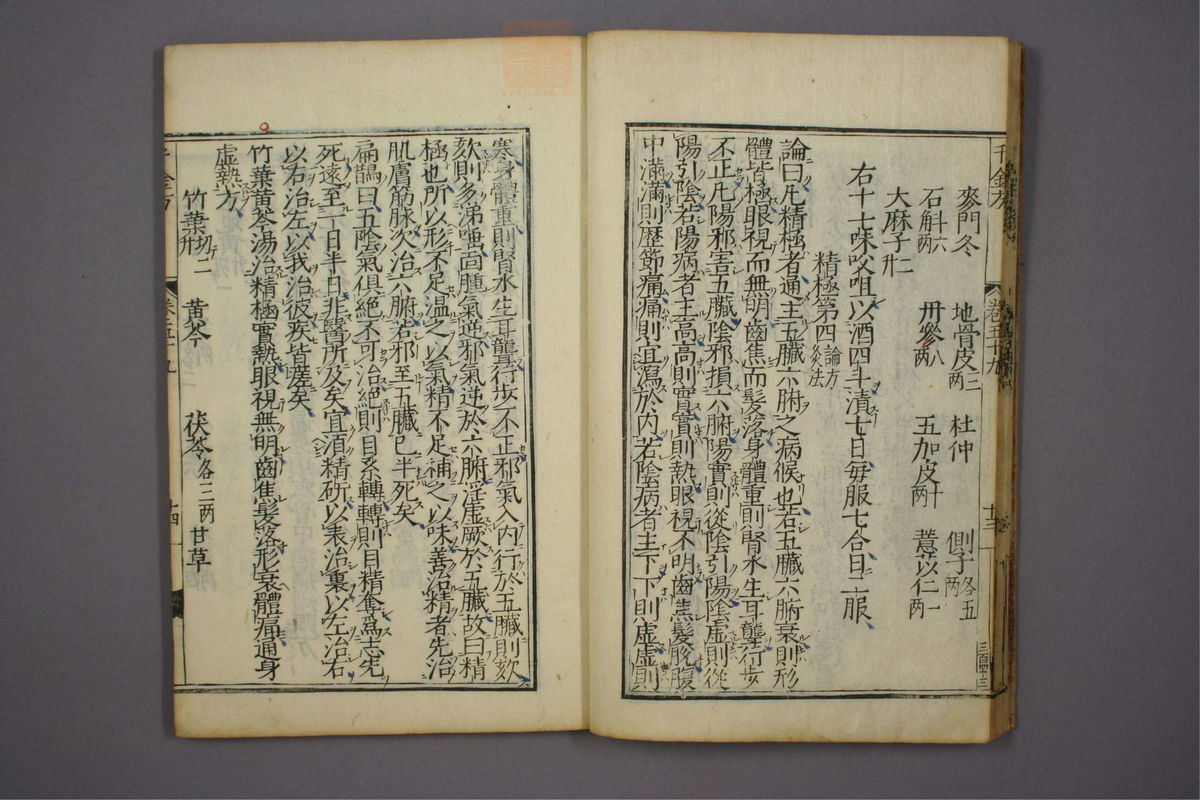 千金方 卷五十九 十三 三百四十三
麥門冬 地骨皮二兩 杜仲 側子各五兩
石斛六兩 丹參八兩 五加皮十兩 薏苡仁一兩
大麻子二升
右十七味㕮咀以酒四斗漬七日毎服七合日二服
精極第四 論方灸法
論曰凡精極者通主五臟六腑之病候也若五臟六腑衰則形
體皆極眼視而無明齒焦而髮落身體重則腎水生耳聾行步
不正凡陽邪害五臟陰邪損六腑陽實則從陰引陽陰虛則從
陽引陰若陽病者主高高則實實則熱眼視不明齒焦髮脫腹
中滿滿則歷節痛痛則宜瀉於内若陰病者主下下則虛虛則
寒身體重則腎水生耳聾行步不正邪氣入内行於五臟則欬
欬則多涕唾面腫氣逆邪氣逆於六腑淫虛厥於五臟故曰精
極也所以形不足温之以氣精不足補之以味善治精者先治
肌膚筋脉次治六腑若邪至五臟已半死矣
扁鵲曰五陰氣俱絶不可治絶則目系轉轉則目精奪爲志先
死遠至一日半日非醫所及矣宜須精研以表治裏以左治右
以右治左以我治彼疾皆瘥矣
竹葉黄芩湯治精極實熱眼視無明齒焦髮落形衰體痛通身
虛熱方
竹葉切二升 黄芩 茯苓各三兩 甘草
千金方 卷五十九 十四